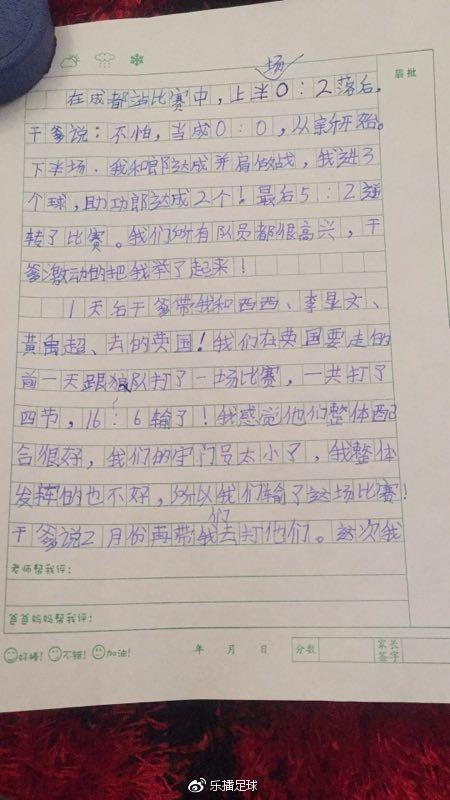 场
在成都站比赛中，上半0：2落后。
眉批
干爹说：不怕，当成0：0，从新开始。
下半场，我和郎达成并肩做战，我进3
个球，助功郎达成2个！最后5：2逆
转了比赛。我们所有队员都很高兴，干
爹激动的把我举了起来！
1天后干爹带我和西西、李星文、
黄禹超、去的英国！我们在英国要走的
前一天跟狼队打了一场比赛，一共打了
四节，16：6输了！我感觉他们整体配
合很好，我们的守门员太小了，我整体
发挥的也不好，所以我们输了这场比赛！
们
干爹说2月份再带我去打他们。这次我
老师帮我评：
爸爸妈妈帮我评：
好棒！ 不错！ 加油！ 年 月 日 分数 家长签字
乐播足球